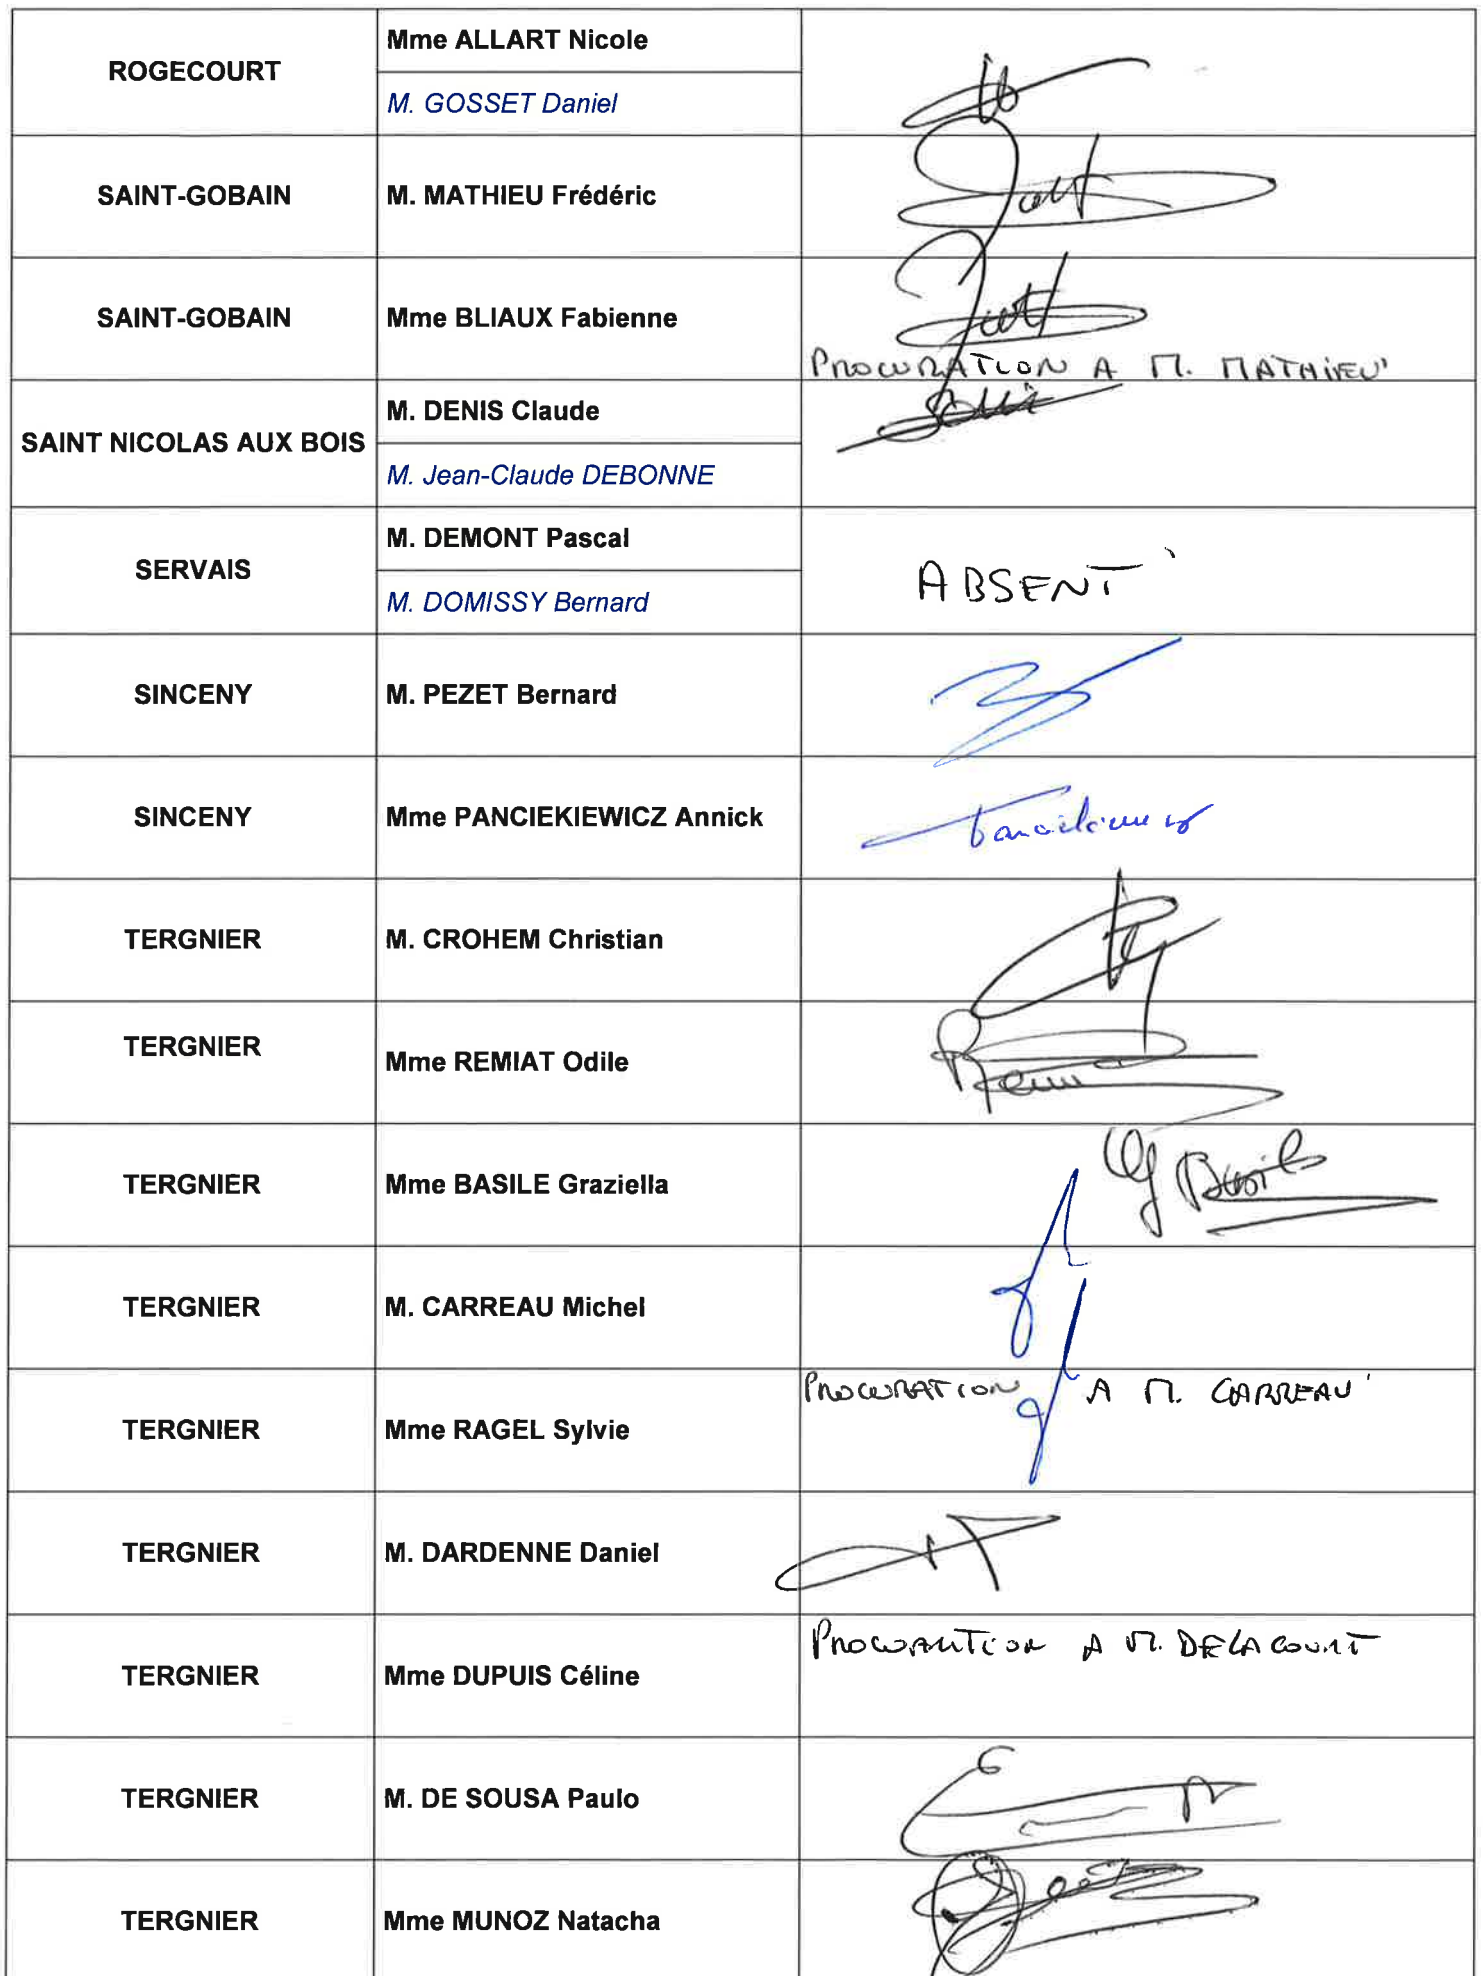 ROGECOURT
Mme ALLART Nicole
M. GOSSET Daniel
SAINT-GOBAIN
M. MATHIEU Frédéric
SAINT-GOBAIN
Mme BLIAUX Fabienne
PROCURATION A M. MATHIEU
SAINT NICOLAS AUX BOIS
M. DENIS Claude
M. Jean-Claude DEBONNE
SERVAIS
M. DEMONT Pascal
M. DOMISSY Bernard
ABSENT
SINCENY
M. PEZET Bernard
SINCENY
Mme PANCIEKIEWICZ Annick
TERGNIER
M. CROHEM Christian
TERGNIER
Mme REMIAT Odile
TERGNIER
Mme BASILE Graziella
TERGNIER
M. CARREAU Michel
TERGNIER
Mme RAGEL Sylvie
PROCURATION A M. CARREAU
TERGNIER
M. DARDENNE Daniel
TERGNIER
Mme DUPUIS Céline
PROCURATION A M. DELACOURT
TERGNIER
M. DE SOUSA Paulo
TERGNIER
Mme MUNOZ Natacha